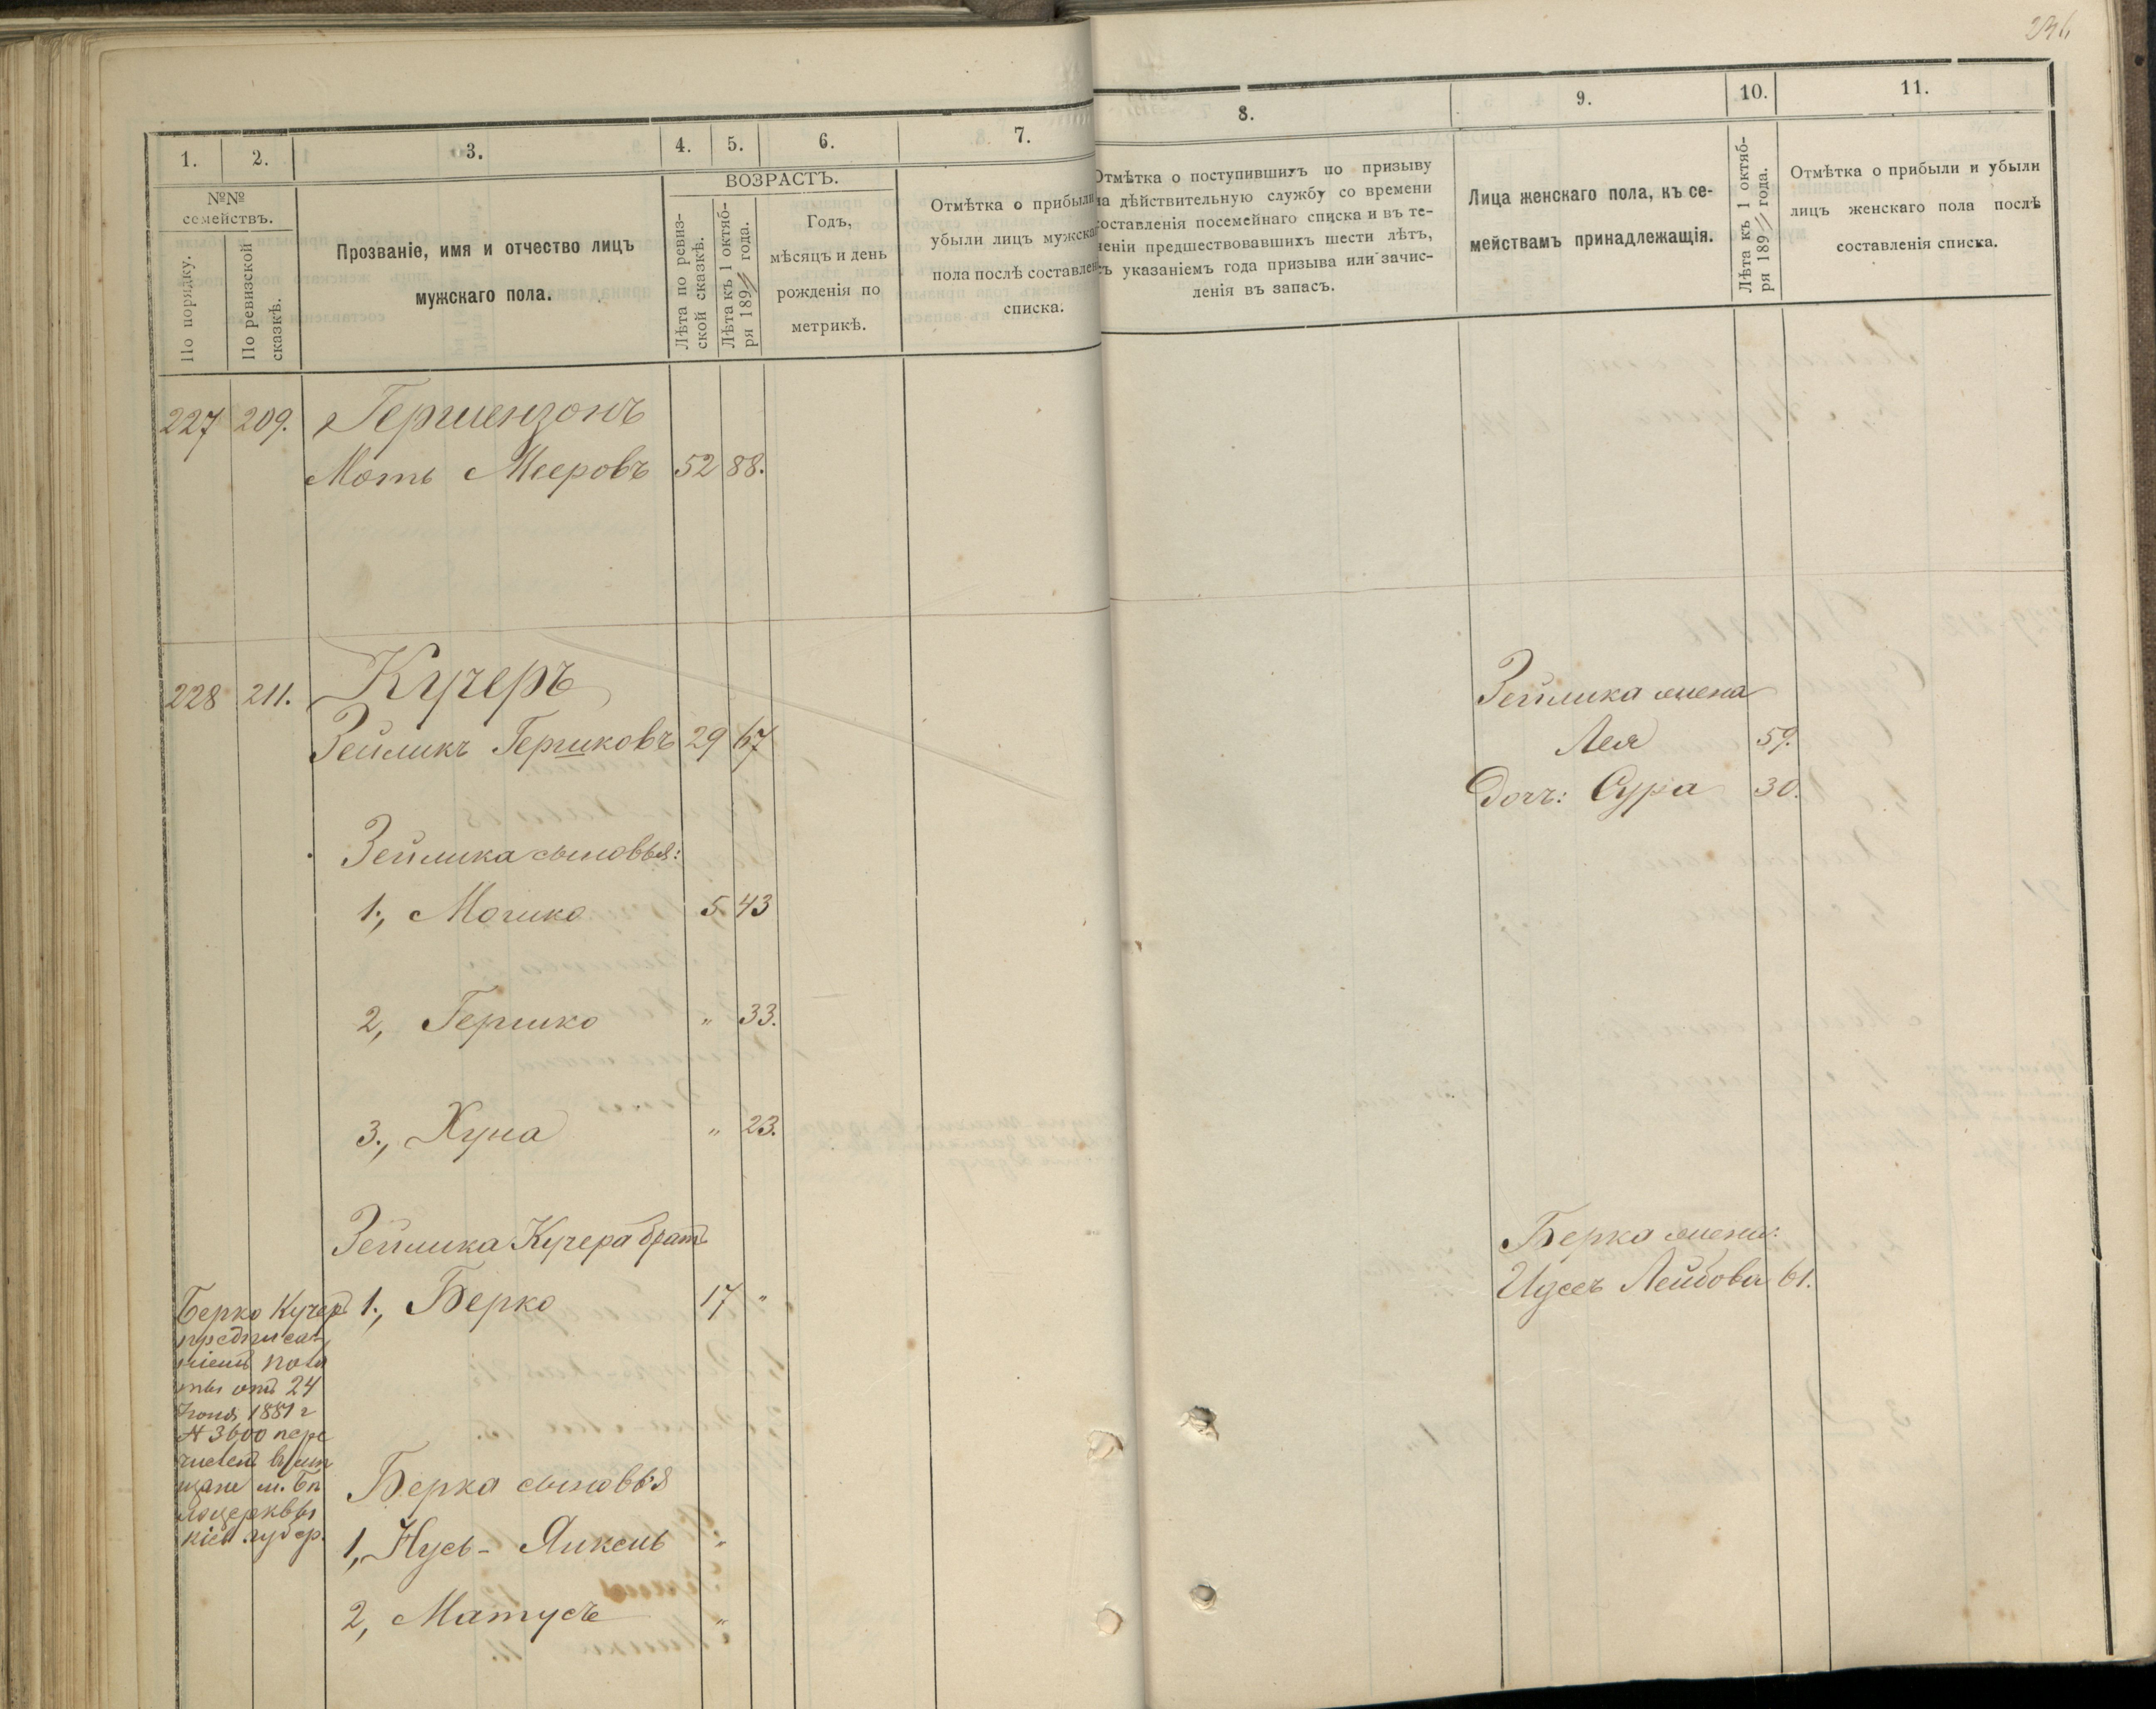 236
1.
2.
3.
4.
5.
6.
7.
8.
9.
10.
11.
№№ семействъ.
По порядку.
По ревизской сказкѣ.
Прозваніе, имя и отчество лицъ
мужскаго пола.
ВОЗРАСТЪ.
Лѣта по ревиз-
ской сказкѣ.
Лѣта къ 1 октяб-
ря 189 года.
Годъ,
мѣсяцъ и день
рожденія по
метрикѣ.
Отмѣтка о прибыли
убыли лицъ мужска
пола послѣ составлен
списка.
Отмѣтка о поступившихъ по призыву
на дѣйствительную службу со времени
составленія посемейнаго списка и въ те-
ченіи предшествовавшихъ шести лѣтъ,
съ указаніемъ года призыва или зачис-
ленія въ запасъ.
Лица женскаго пола, къ се-
мействамъ принадлежащія.
Лѣта къ 1 октяб-
ря 189 года.
Отмѣтка о прибыли и убыли
лицъ женскаго пола послѣ
составленія списка.
227 209. Гершензонъ
Моть Мееровъ 52 88.
228 211. Кучеръ
Зейликъ Гершковъ 29 67
Зейлика жена
Лея 59.
Дочь: Сура 30.
Зейлика сыновья:
1., Мошко 5 43
2, Гершко " 33.
3., Хуна " 23.
Зейлика Кучера братъ
1., Берко 17 "
Берка жена:
Идесъ Лейбова 61.
Берко Кучеръ
предписа-
ніемъ пала
ты отъ 24
1881 г
№ 3600 пере
численъ въ мѣ
щане м. Бѣ
лоцерквы
Кіев. губер.
Берка сыновья
1, Нусь-Янкель "
2, Матусъ "